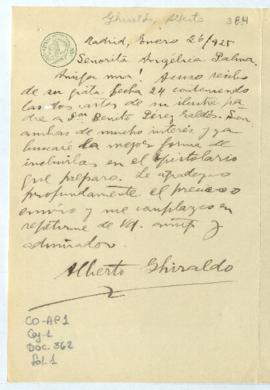 Ghiraldo, Alberto 384
Madrid, Enero 26/925
Señorita Angélica Palma.
Amiga mia: Acuso recibo
de su grata fecha 24 conteniendo
las dos cartas de su ilustre pa-
dre a Don Benito Pérez Galdós. Son
ambas de mucho interés y ya
buscaré la mejor forma de
incluirlas en el Epistolario
que preparo. Le agradezco
profundamente el precioso
envío y me complazco en
repetirme de Vd. amigo y
admirador.
Alberto Ghiraldo
CO-AP1
Caj-1
Doc. 362
fol. 1